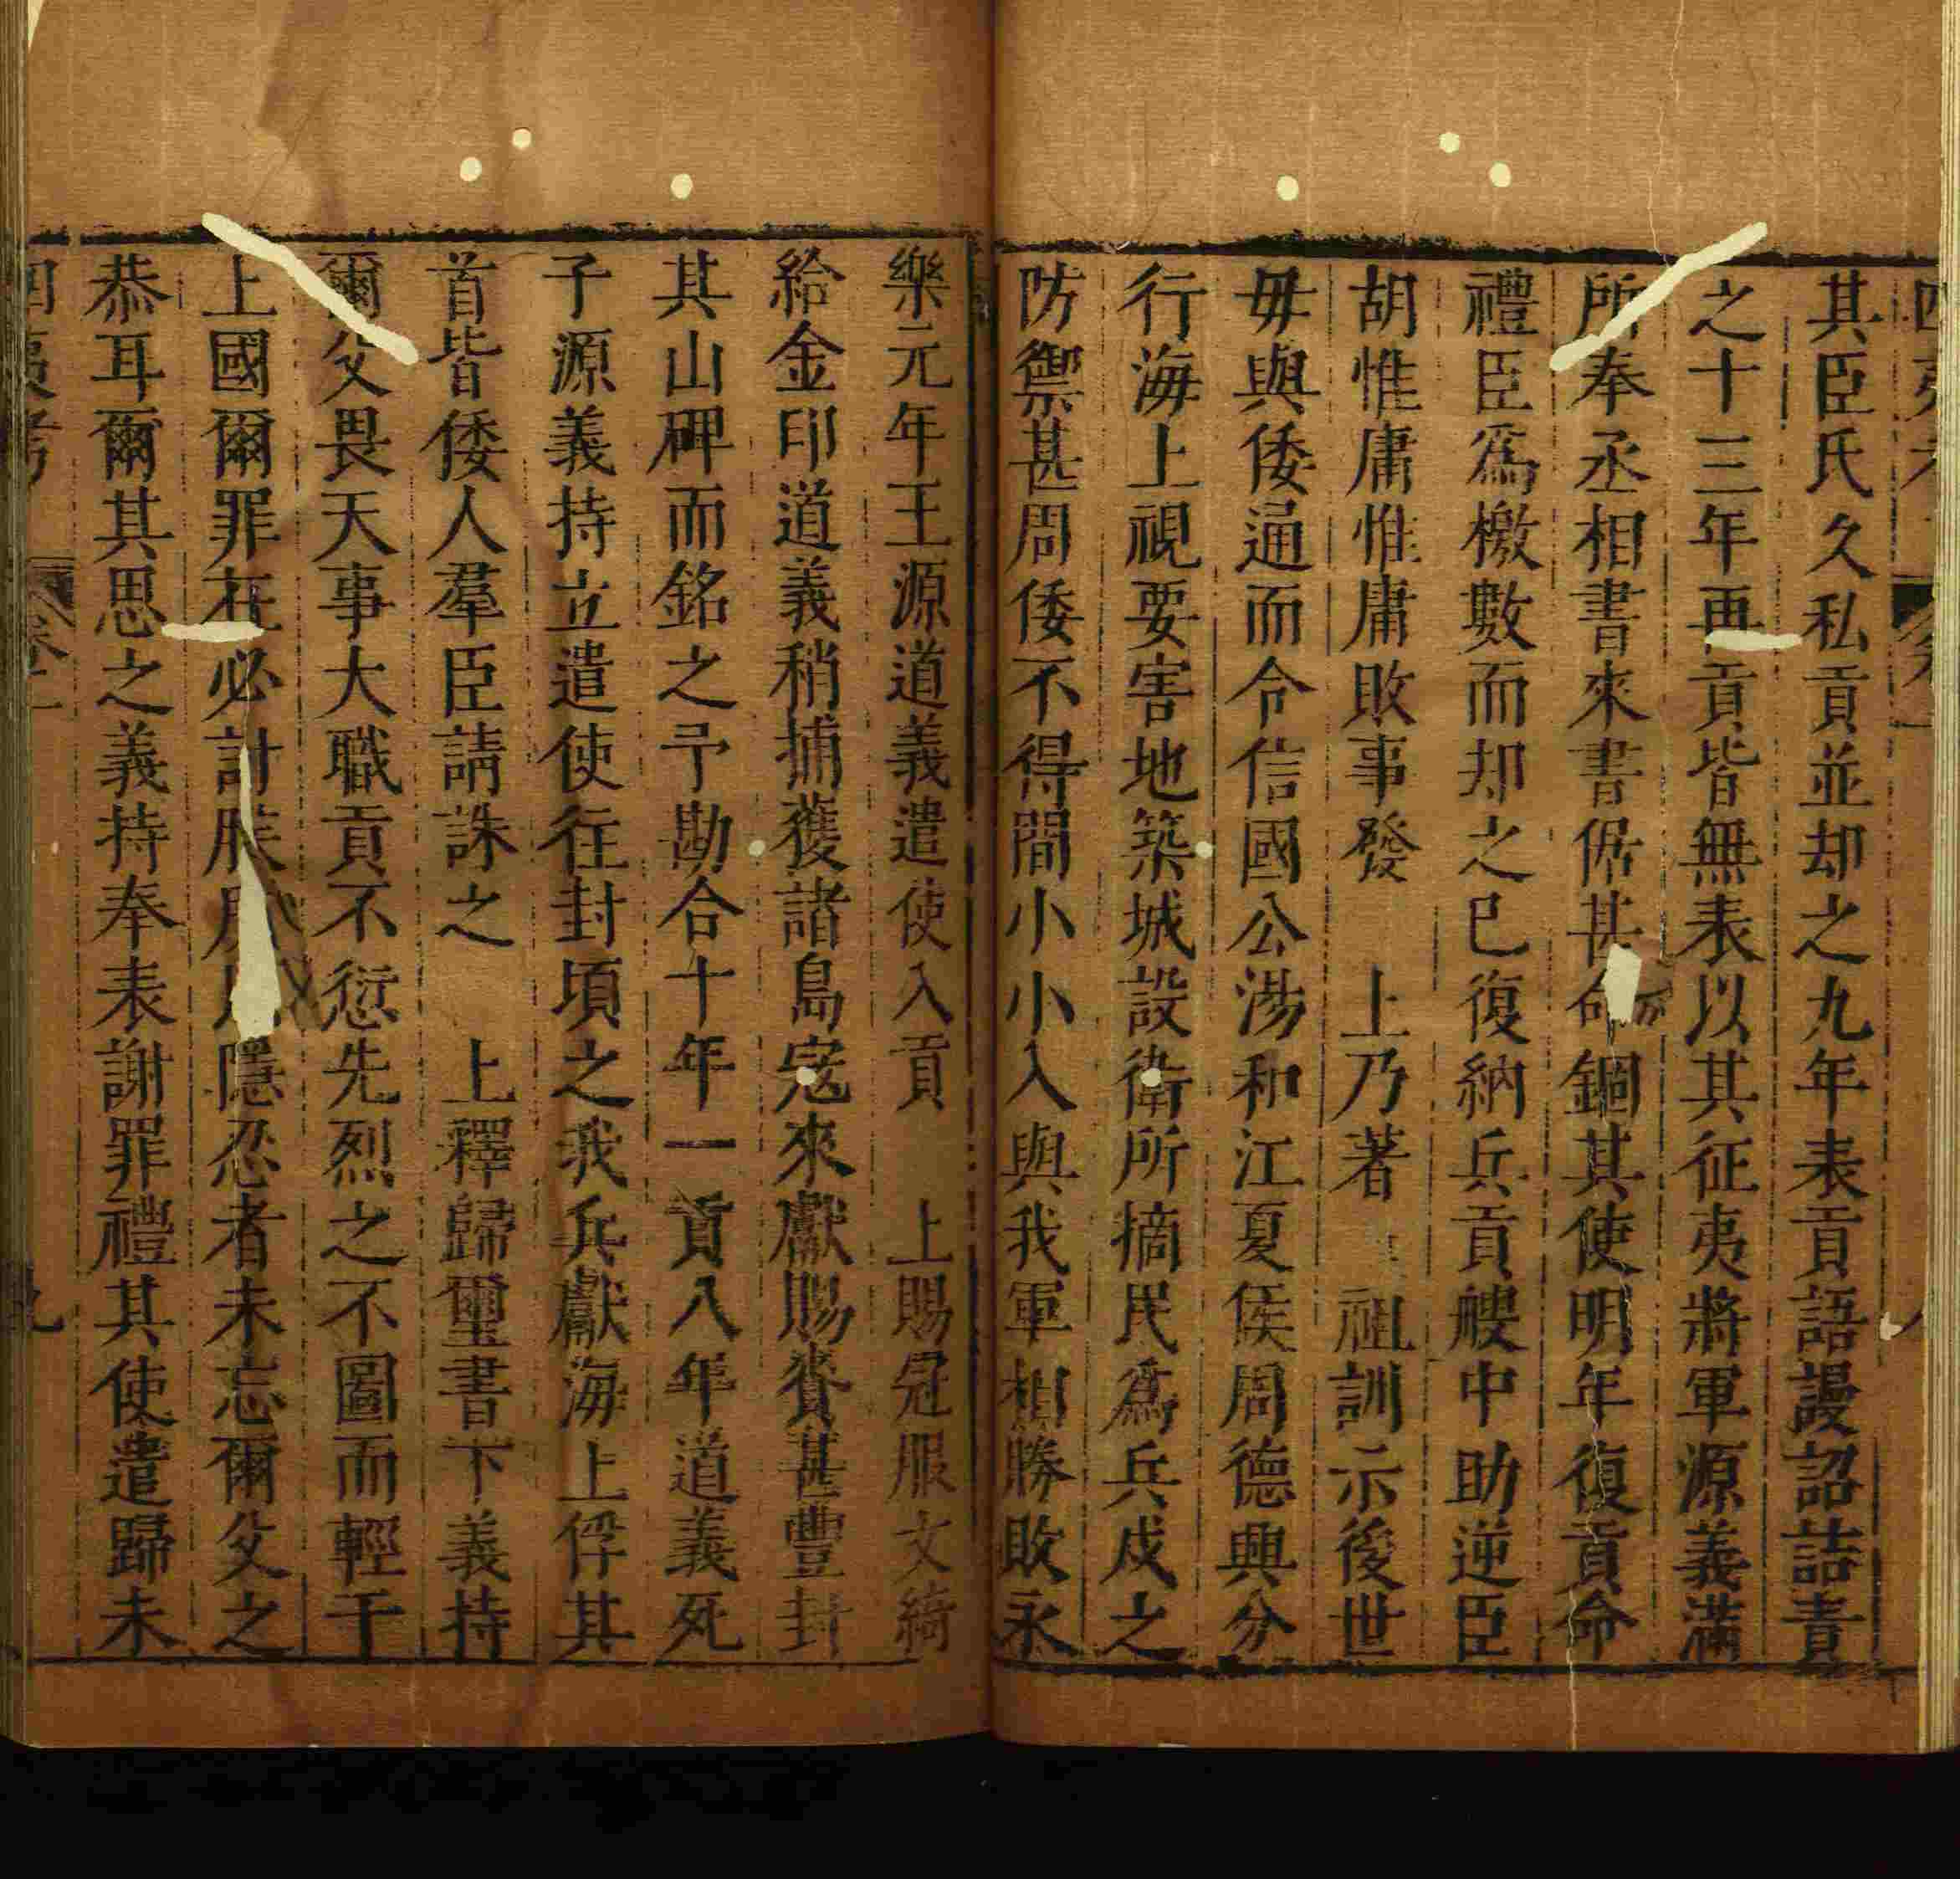 其臣氏久私貢並却之九年表貢語謾詔詰責
之十三年再貢皆無表以其征夷將軍源義滿
所奉丞相書來書倨甚命錮其使明年復貢命
禮臣爲檄數而却之已復納兵貢艘中助逆臣
胡惟庸惟庸敗事發 上乃著 祖訓示後世
毋與倭通而令信國公湯和江夏侯周德興分
行海上視要害地築城設衛所摘民爲兵戍之
防禦甚周倭不得間小小入與我軍相勝敗永
樂元年王源道義遣使入貢 上賜冠服文綺
給金印道義稍捕獲諸島寇來獻賜賚甚豐封
其山碑而銘之予勘合十年一貢八年道義死
子源義持立遣使往封頃之我兵獻海上俘其
首皆倭人羣臣請誅之 上釋歸璽書下義持
爾父畏天事大職貢不愆先烈之不圖而輕于
上國爾罪在必討朕所隱忍者未忘爾父之
恭耳爾其思之義持奉表謝罪禮其使遣歸未
四夷考 卷之一 九